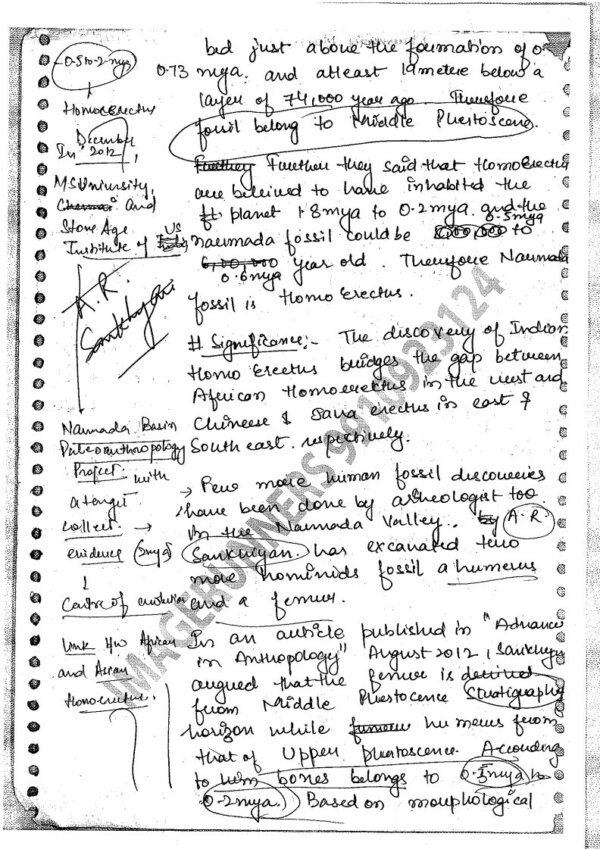 bed just above the formation of 0.
0.73 mya. and atleast 19 metere below a
layer of 74,000 year ago. Therefore
fossil belong to Middle Pliestoscene.
Further they said that Homo Erectus
are beleived to have inhabited the
planet 1.8 mya to 0.2 mya. and the
narmada fossil could be 0.5 mya to
0.6 mya year old. Therefore Narmada
fossil is Homo Erectus.
# Significance:- The discovery of Indian
Homo Erectus bridges the gap between
African Homoerectus in the west and
Chineese & Java erectus in east &
South east. respectively.
→ Few more human fossil discoveries
have been done by archeologist too
in the Narmada Valley. by A.R.
Sankhyan. has excavated two
more hominids fossil a humerus
and a femur.
In an article published in "Advance
in Anthopology" August 2012, Sankhyan
argued that the femur is derived
from Middle Pliestocence Stratigraphy
horizon while humerus from
that of Upper pliestoscence. According
to him bones belongs to 0.5 mya to
0.2 mya. Based on morphological
0.5 to 0.2 mya
Homoerectus
December
In 2012,
MS University,
Chennai and
Stone Age
Institute of US
A.R.
Sankhyan
Narmada Basin
Paleoanthropology
Project with
a target
collect →
evidence (5mya)
↓
Centre of evolution
link b/w African
and Asian
Homoerectus.
IMAGERUNNERS 9910923124